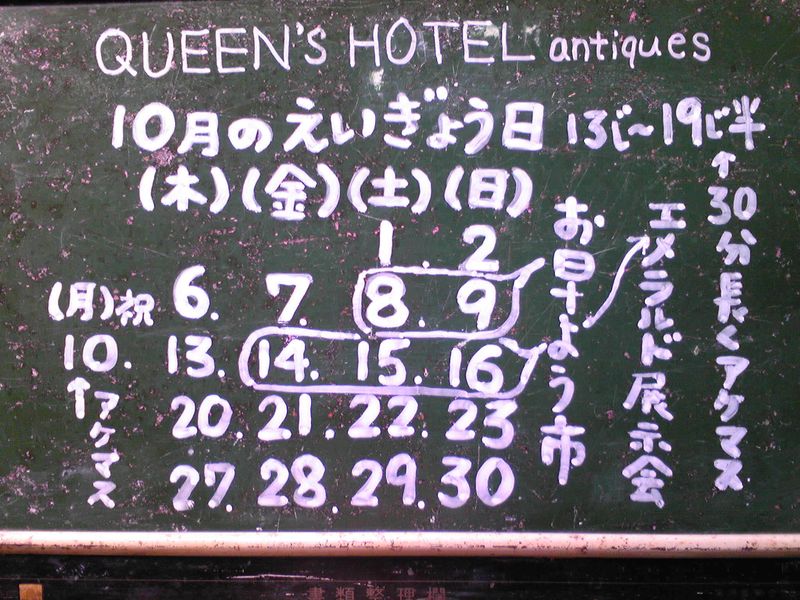 QUEEN'S HOTEL antiques
10月のえいぎょう日 13じ〜19じ半
(木)(金)(土)(日)
1. 2
6. 7. 8. 9
(月)祝
10. 13. 14. 15. 16
20. 21. 22. 23
27. 28. 29. 30
↑アケマス
お日よう市
エメラルド展示会
↑30分長くアケマス
書類整理棚